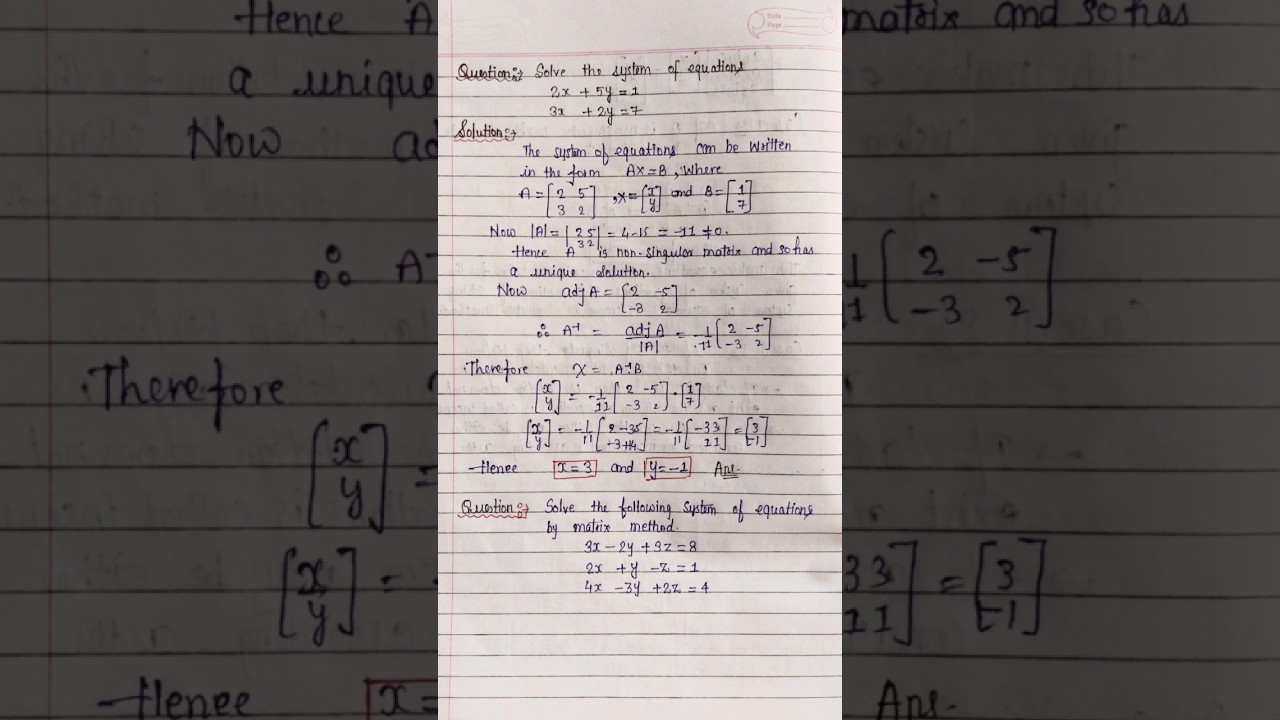 Date
Page
Question:→ Solve the system of equations
2x + 5y = 1
3x + 2y = 7
Solution:→
The system of equations can be written
in the form AX = B, Where
A = [2 5 3 2], X = [x y] and B = [1 7]
Now |A| = |2 5 3 2| = 4-15 = -11 ≠ 0.
Hence A is non-singular matrix and so has
a unique solution.
Now adj A = [2 -5 -3 2]
∴ A⁻¹ = adj A / |A| = -1/11 [2 -5 -3 2]
Therefore X = A⁻¹B
[x y] = -1/11 [2 -5 -3 2] · [1 7]
[x y] = -1/11 [2-35 -3+14] = -1/11 [-33 11] = [3 -1]
Hence x = 3 and y = -1 Ans.
Question:→ Solve the following system of equations
by matrix method.
3x - 2y + 3z = 8
2x + y - z = 1
4x - 3y + 2z = 4